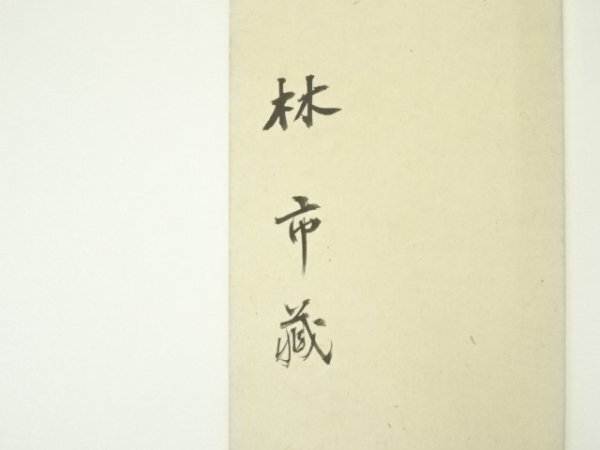 林市藏